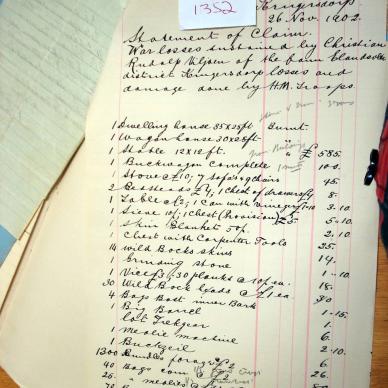 1352
Krugersdorp
26. Nov. 1902.
Statement of Claim.
War losses sustained by Christian
Rudolf Viljoen of the farm Elandsvlei
district Krugersdorp losses and
damage done by H.M. Troops.
1 Dwelling house 35x25ft Burnt.
1 Wagon house 30x25ft "
1 Stable 12x12ft. " £ 585.
1 Buckwagon complete 100.
1 Stove £10; 7 sofa's & 9 chairs 45.
2 Bedsteads £4; 1 Chest of drawers 8.
1 Table £2; 1 Can with vinegar 3.10
1 Chest (Provision) £5 5.10.
1 Skin Blanket 50/. 2.10.
1 Chest with Carpenter Tools 25.
14 wild Bocks skins 14.
1 Grinding stone 1.10.
1 Vice £3; 30 planks @ 10/ ea. 18.
30 Wild Bock heads @ £1 ea. 30
4 Bags Bark
1 Big Barrel 1.15.
1 lot Trekgear 1.
1 Mealie machine 6.
1 Buckzeil 2.10
1300 Bundles forage 6.
40 Bags corn 26.
25 " mealies